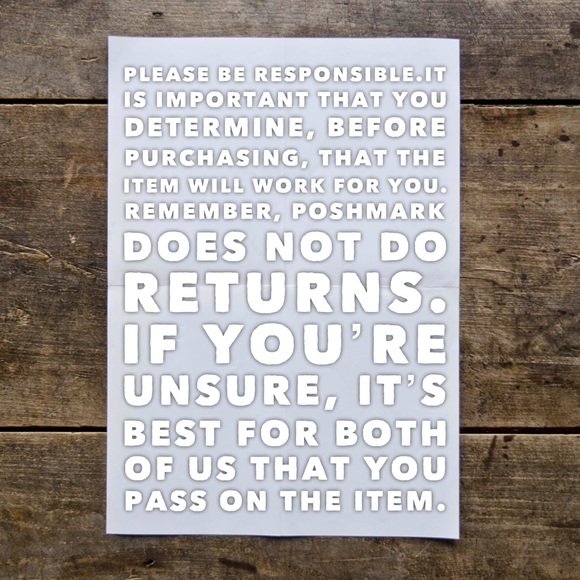 PLEASE BE RESPONSIBLE.IT
IS IMPORTANT THAT YOU
DETERMINE, BEFORE
PURCHASING, THAT THE
ITEM WILL WORK FOR YOU.
REMEMBER, POSHMARK
DOES NOT DO
RETURNS.
IF YOU'RE
UNSURE, IT'S
BEST FOR BOTH
OF US THAT YOU
PASS ON THE ITEM.